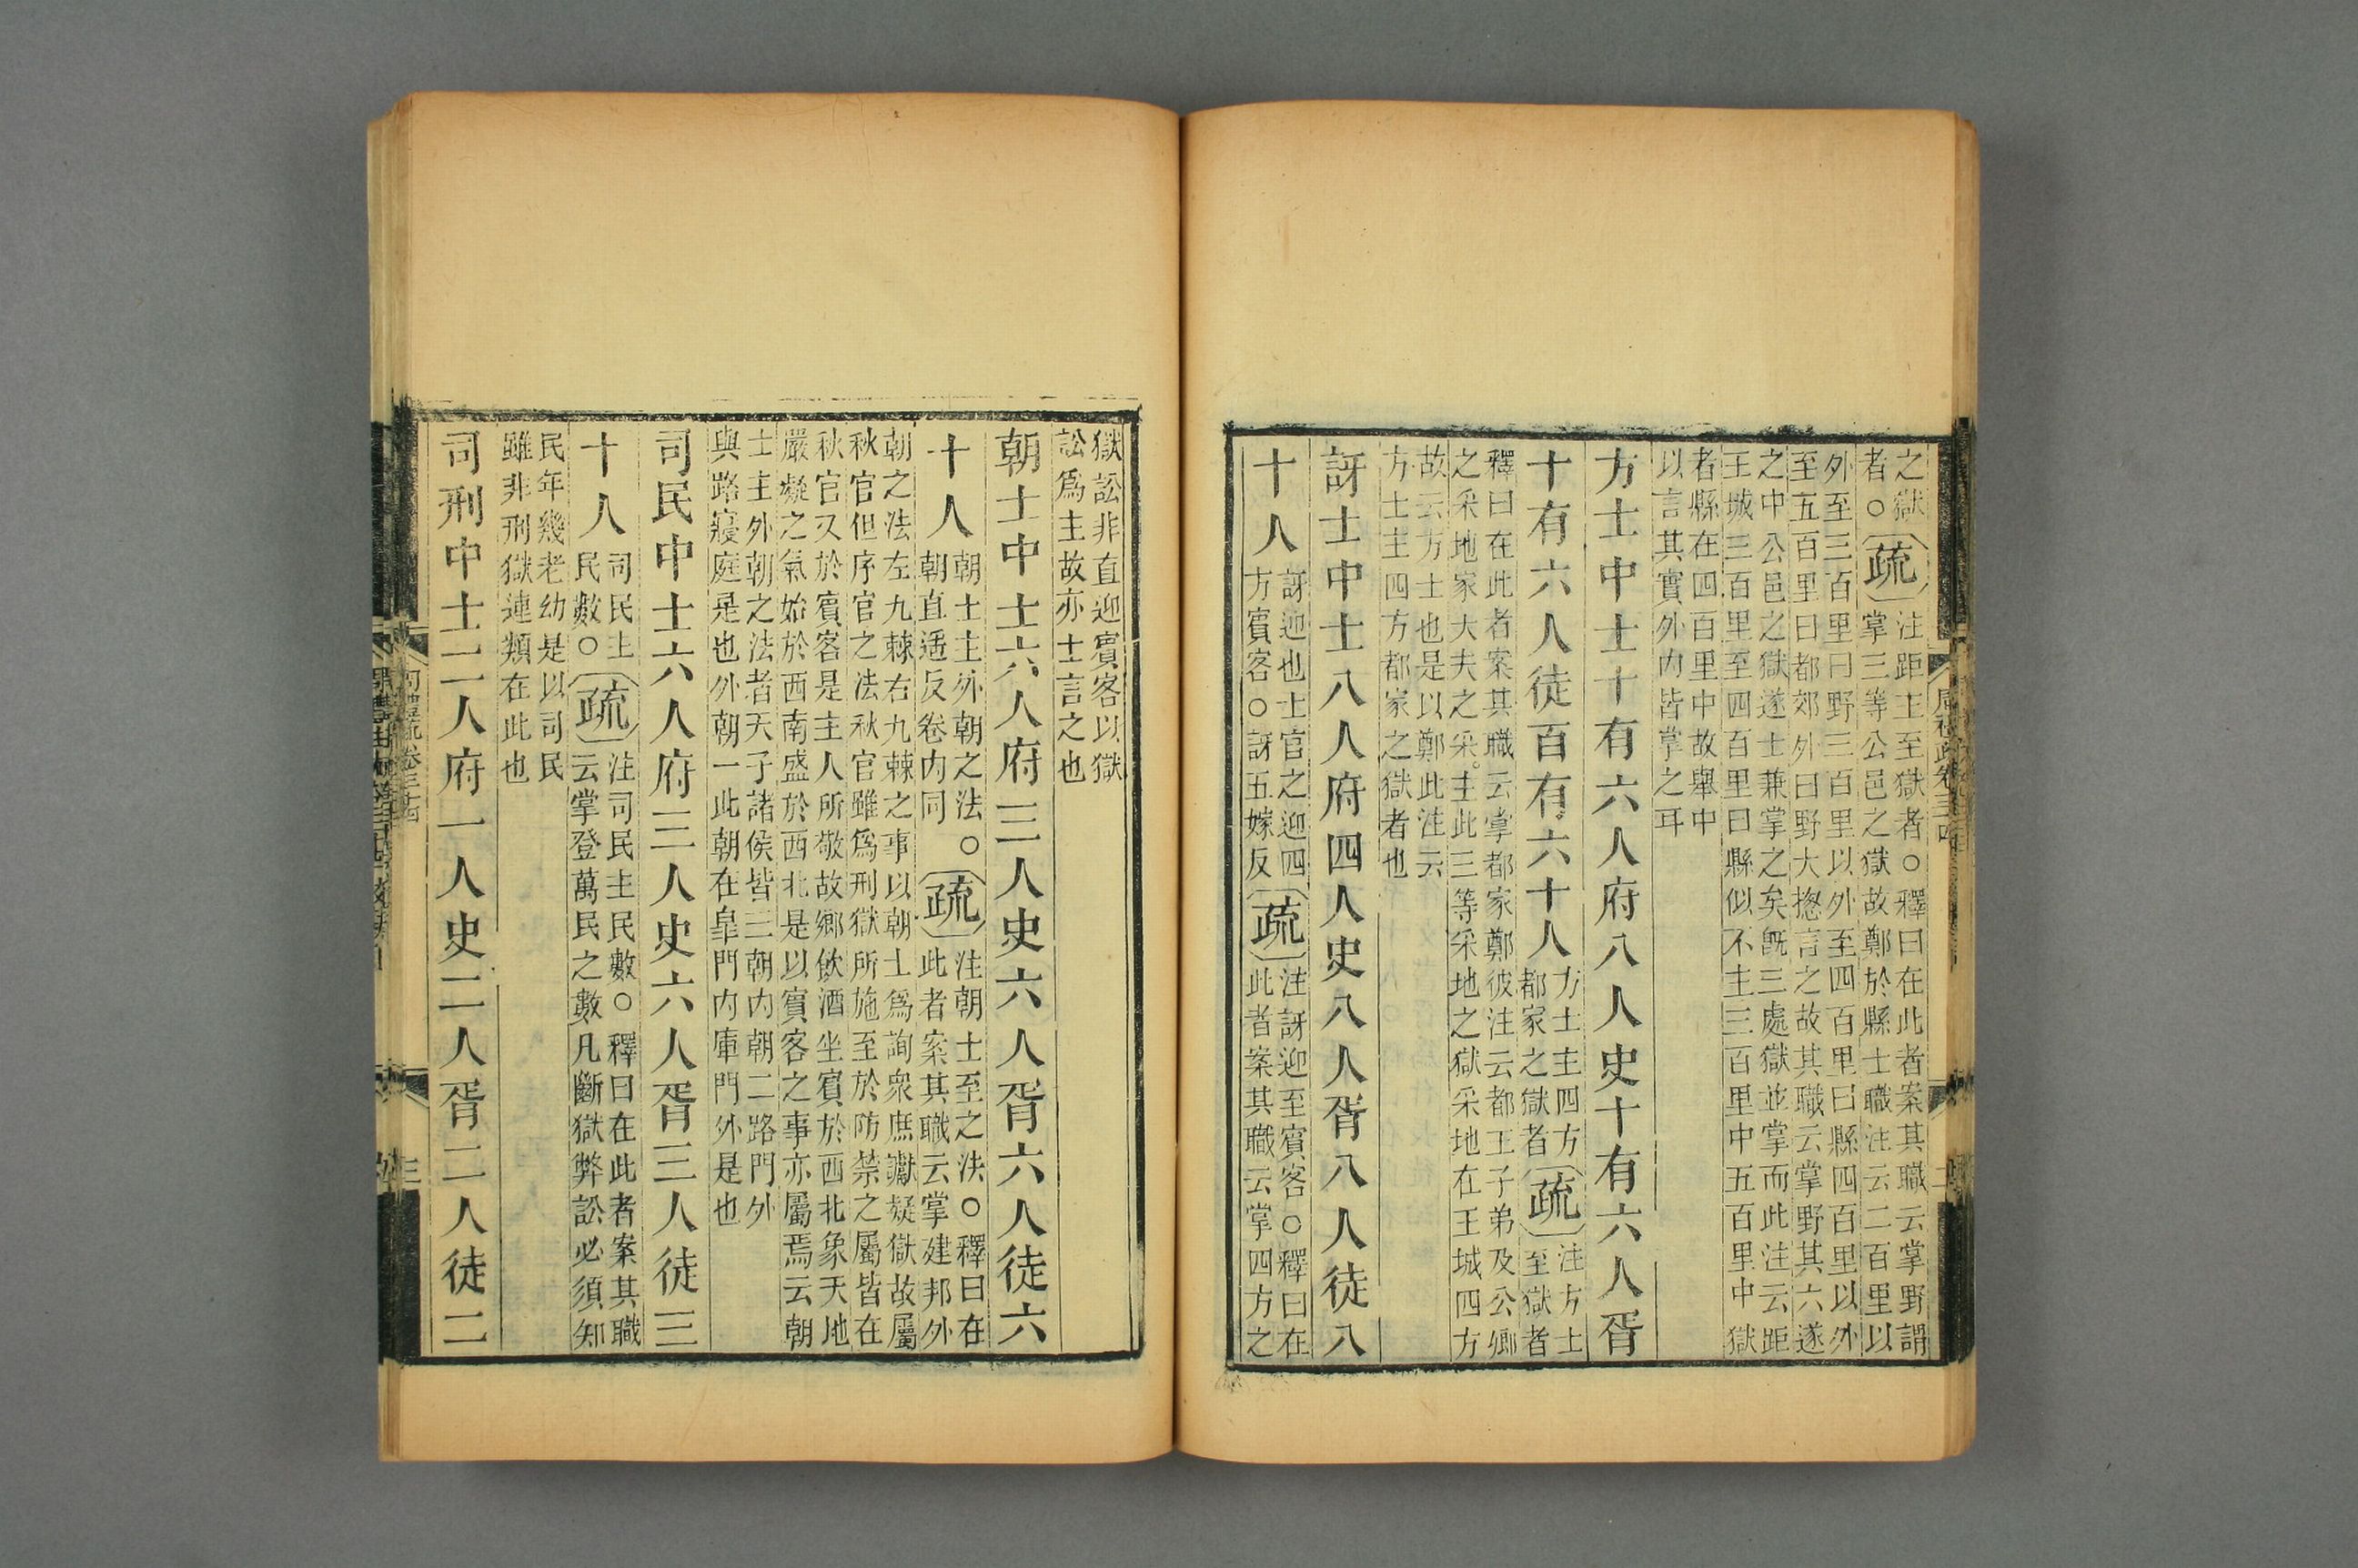 之獄
者○
疏
注距主至獄者○釋曰在此者案其職云掌野謂
掌三等公邑之獄故鄭於縣士職注云二百里以
外至三百里曰野三百里以外至四百里曰縣四百里以外
至五百里曰都郊外曰野大揔言之故其職云掌野其六遂
之中公邑之獄遂士兼掌之矣旣三處獄並掌而此注云距
王城三百里至四百里曰縣似不主三百里中五百里中獄
者縣在四百里中故舉中
以言其實外內皆掌之耳
方士中士十有六人府八人史十有六人胥
十有六人徒百有六十人
方士主四方
都家之獄者
疏
注方士
至獄者
釋曰在此者案其職云掌都家鄭彼注云都王子弟及公卿
之采地家大夫之采主此三等采地之獄采地在王城四方
故云方士也是以鄭此注云
方士主四方都家之獄者也
訝士中士八人府四人史八人胥八人徒八
十人
訝迎也士官之迎四
方賓客○訝五嫁反
疏
注訝迎至賓客○釋曰在
此者案其職云掌四方之
獄訟非直迎賓客以獄
訟爲主故亦士言之也
朝士中士六人府三人史六人胥六人徒六
十人
朝士主外朝之法○
朝直遥反卷内同
疏
注朝士至之法○釋曰在
此者案其職云掌建邦外
朝之法左九棘右九棘之事以朝士爲詢衆庶讞疑獄故屬
秋官但序官之法秋官雖爲刑獄所施至於防禁之屬皆在
秋官又於賓客是主人所敬故鄉飲酒坐賓於西北象天地
嚴凝之氣始於西南盛於西北是以賓客之事亦屬焉云朝
士主外朝之法者天子諸侯皆三朝内朝二路門外
與路寢庭是也外朝一此朝在臯門内庫門外是也
司民中士六人府三人史六人胥三人徒三
十人
司民主
民數○
疏
注司民主民數○釋曰在此者案其職
云掌登萬民之數凡斷獄弊訟必須知
民年幾老幼是以司民
雖非刑獄連類在此也
司刑中士二人府一人史二人胥二人徒二